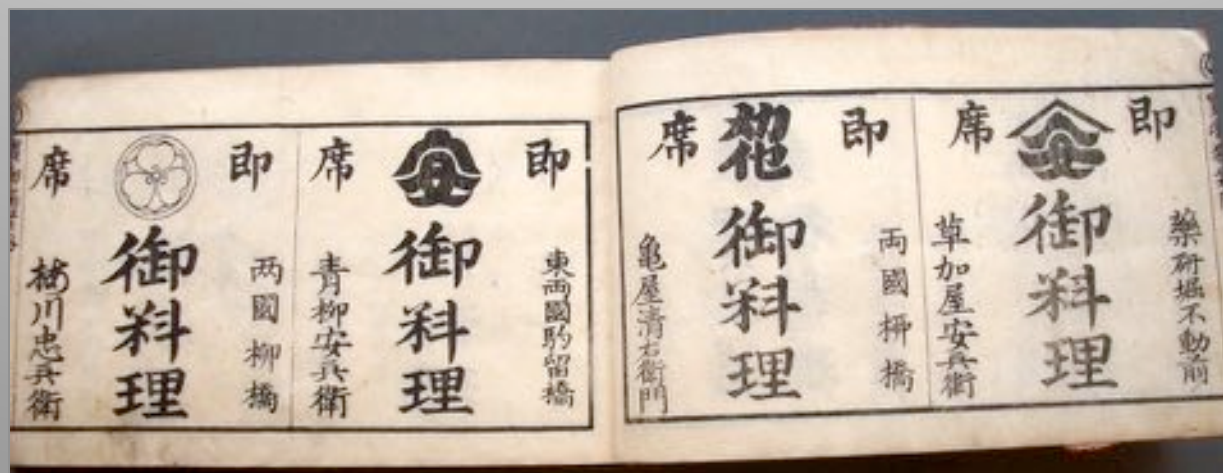 即席
御料理
薬研堀不動前
草加屋安兵衛
即席
御料理
両國柳橋
亀屋清右衛門
即席
御料理
東両國駒留橋
青柳安兵衛
即席
御料理
両國柳橋
梅川忠兵衛